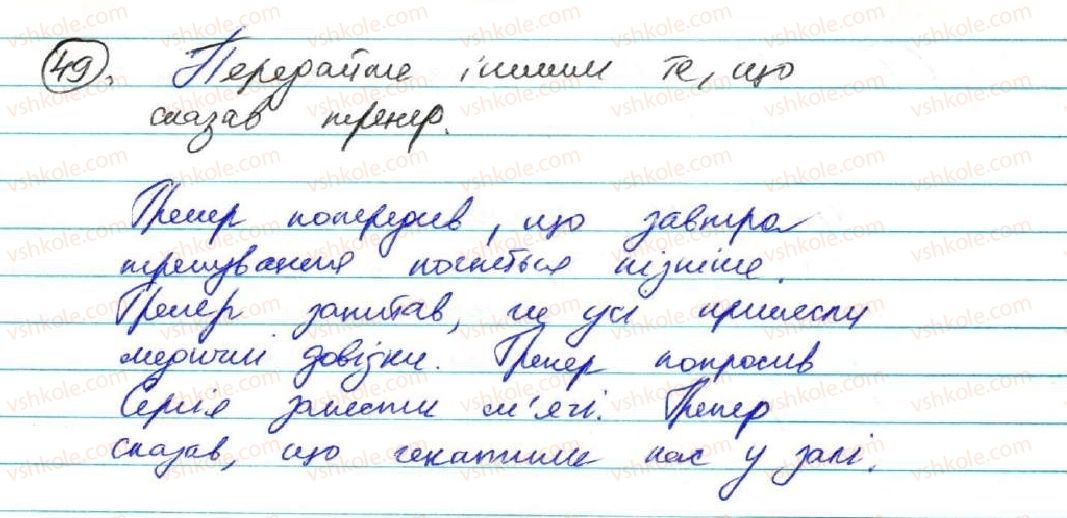 49. Передайте іншим те, що
сказав тренер.
Тренер попередив, що завтра
тренування почнеться пізніше.
Тренер запитав, чи усі принесли
медичні довізки. Тренер попросив
Сергія занести м'ячі. Тренер
сказав, що чекатиме нас у залі.